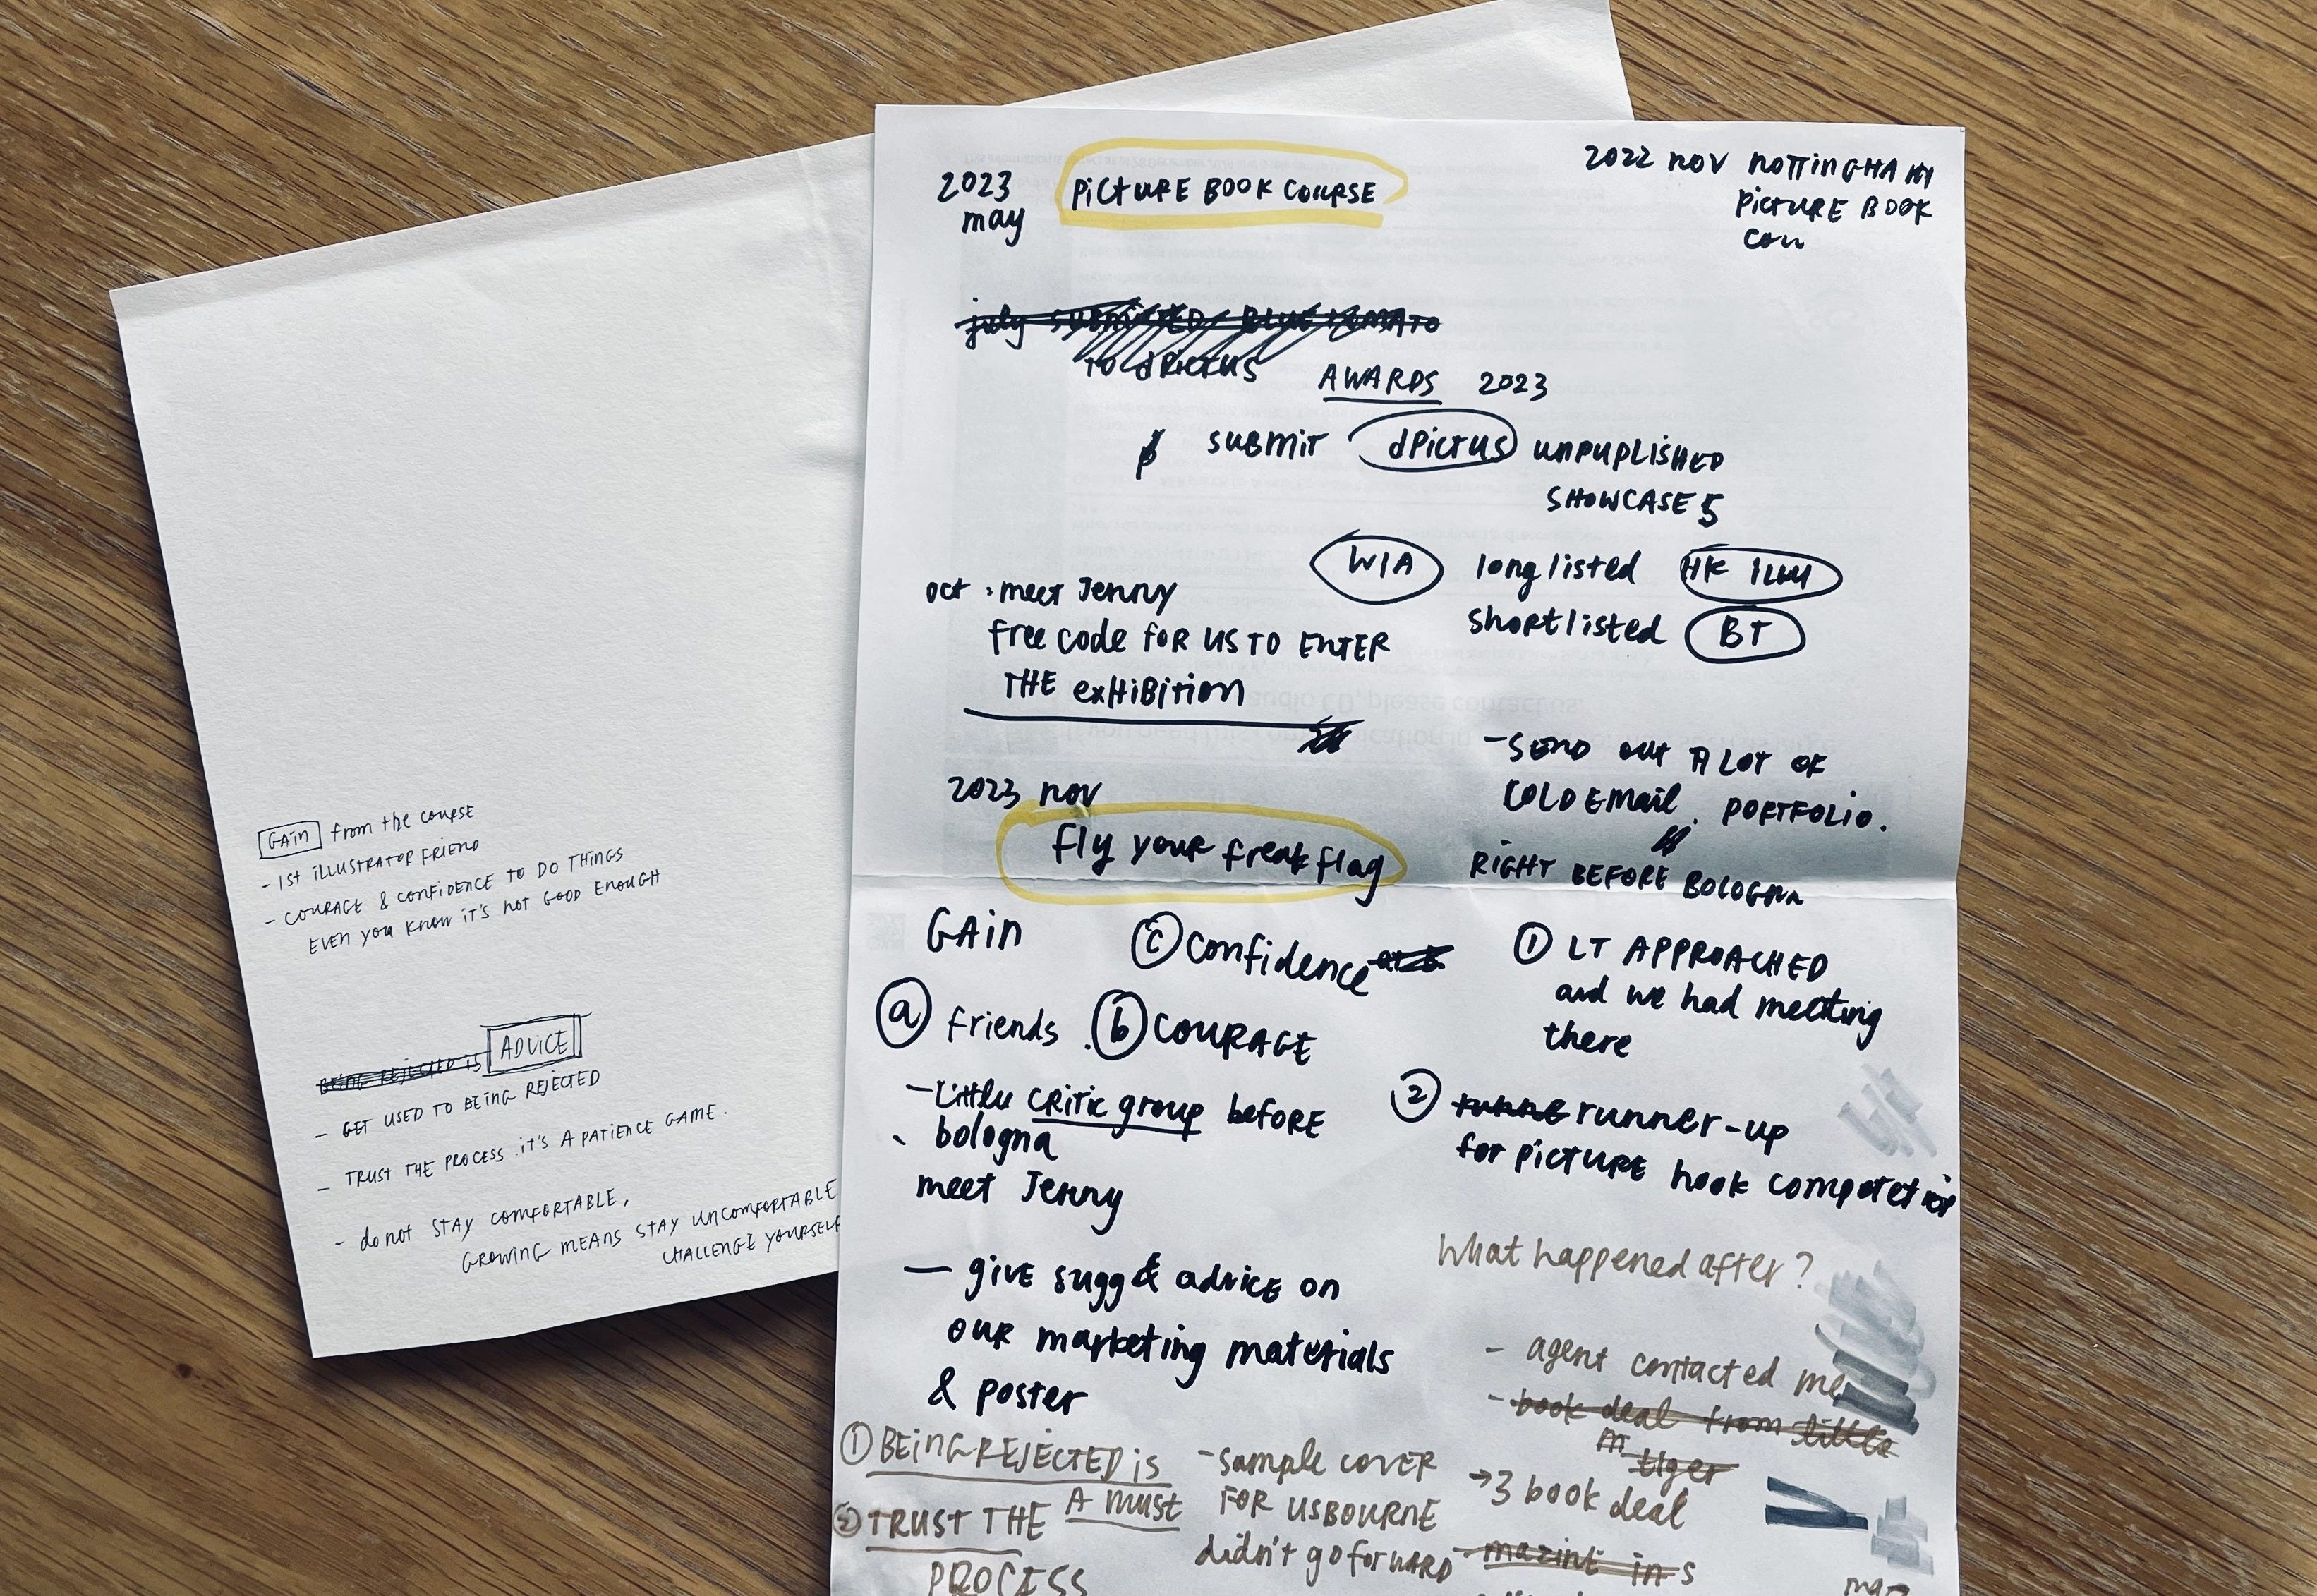 GAIN from the COURSE
- 1st ILLUSTRATOR FRIEND
- COURAGE & CONFIDENCE TO DO THINGS
EVEN YOU KNOW IT'S NOT GOOD ENOUGH
BEING REJECTED IS ADVICE
- GET USED TO BEING REJECTED
- TRUST THE PROCESS. IT'S A PATIENCE GAME.
- do not STAY COMFORTABLE,
GROWING MEANS STAY UNCOMFORTABLE
CHALLENGE YOURSELF
2023 PICTURE BOOK COURSE
may
2022 NOV NOTTINGHAM
PICTURE BOOK
july SUBMITTED BLUE TOMATO
TO dPICTUS
AWARDS 2023
SUBMIT dPICTUS UNPUPLISHED
SHOWCASE 5
WIA longlisted HK ILLU
shortlisted BT
oct . meet Jenny
free code FOR US TO ENTER
THE exHIBITION
2023 nov
fly your freak flag
- SEND out A LOT OF
COLD EMAIL. PORTFOLIO.
RIGHT BEFORE BOLOGNA
GAIN
c confidence
a friends . b COURAGE
- Little CRITIC group BEFORE
bologna
meet Jenny
- give sugg & advice on
our marketing materials
& poster
1 LT APPROACHED
and we had meeting
there
2 runner-up
for PICTURE hook competetion
What happened after?
- agent contacted me
- book deal from little
tiger
→ 3 book deal
1 BEING REJECTED is
A MUST
2 TRUST THE
PROCESS
- sample COVER
FOR USBOURNE
didn't go forWARD